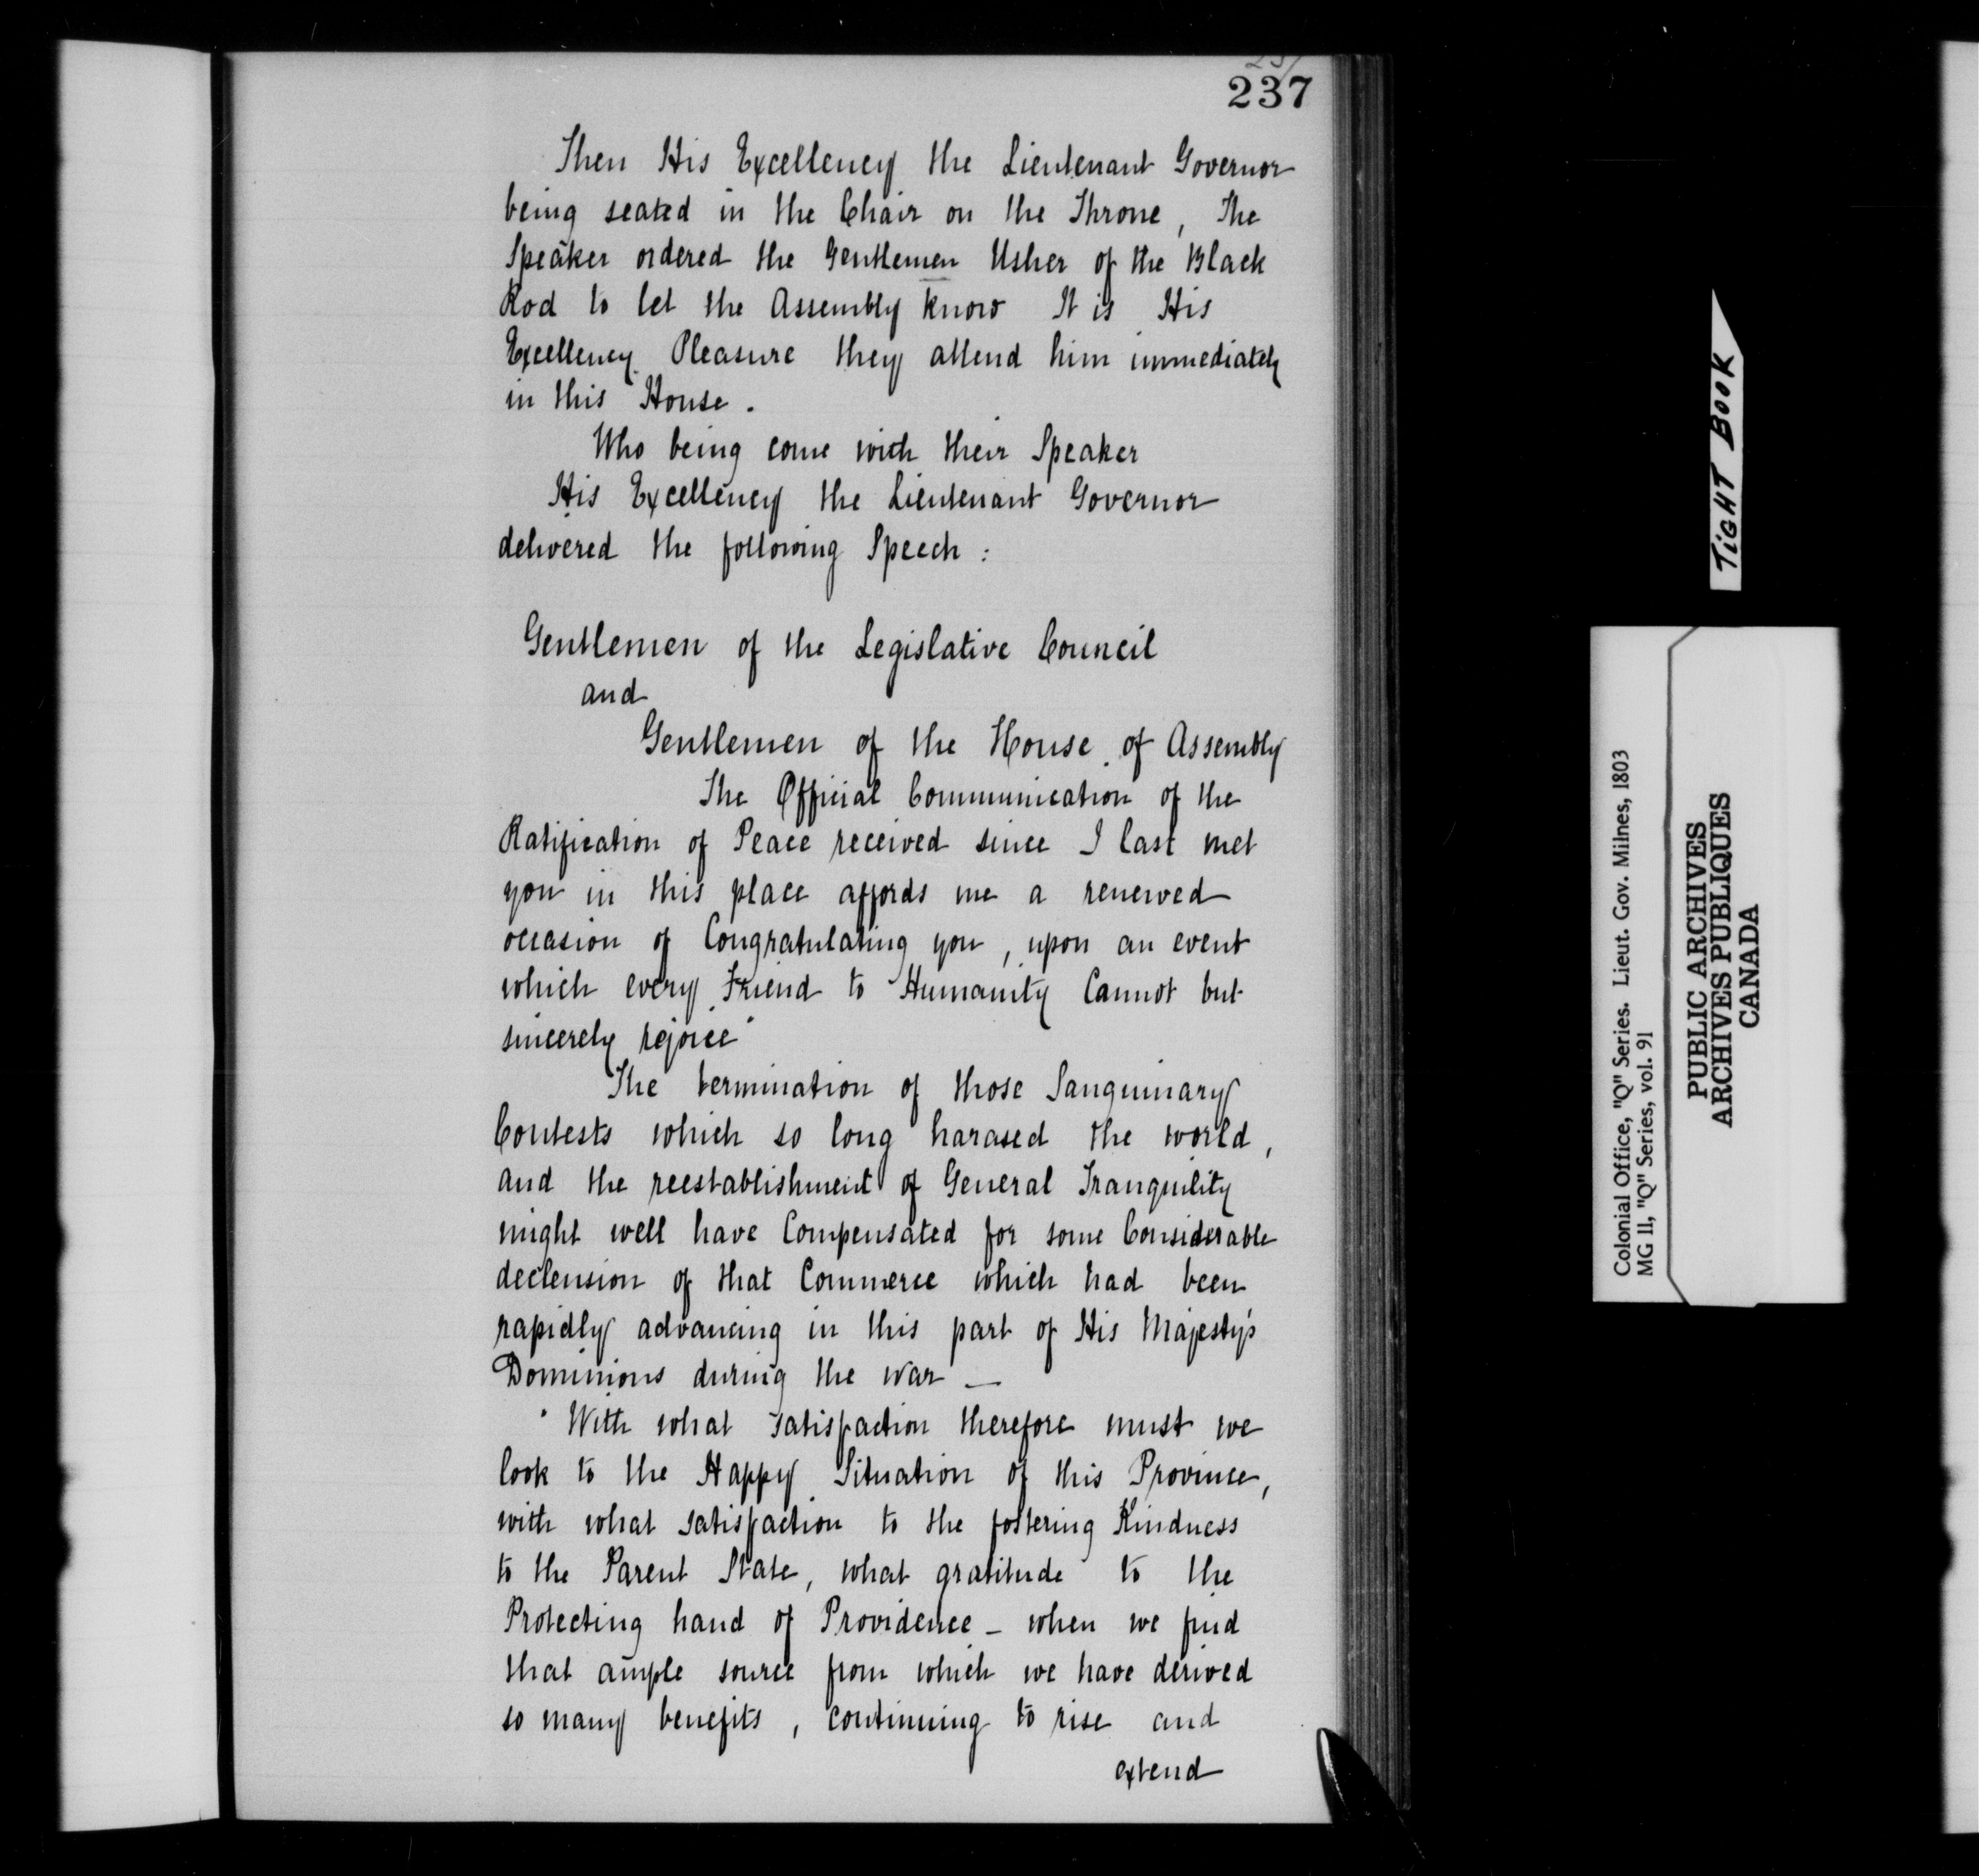 237
Then His Excellency the Lieutenant Governor
being seated in the Chair on the Throne, The
Speaker ordered the Gentlemen Usher of the Black
Rod to let the Assembly know It is His
Excellency Pleasure they attend him immediately
in this House.
Who being come with their Speaker
His Excellency the Lieutenant Governor
delivered the following Speech:
Gentlemen of the Legislative Council
and
Gentlemen of the House of Assembly
The Official Communication of the
Ratification of Peace received since I last met
you in this place affords me a renewed
occasion of Congratulating you, upon an event
which every Friend to Humanity Cannot but
sincerely rejoice
The termination of those Sanguinary
Contests which so long harased the world,
and the reestablishment of General Tranquility
might well have Compensated for some Considerable
declension of that Commerce which had been
rapidly advancing in this part of His Majesty's
Dominions during the war —
With what satisfaction therefore must we
look to the Happy Situation of this Province,
with what satisfaction to the fostering Kindness
to the Parent State, what gratitude to the
Protecting hand of Providence - when we find
that ample source from which we have derived
so many benefits, continuing to rise and
extend
TIGHT BOOK
Colonial Office, "Q" Series. Lieut. Gov. Milnes, 1803
MG 11, "Q" Series, vol. 91
PUBLIC ARCHIVES
ARCHIVES PUBLIQUES
CANADA